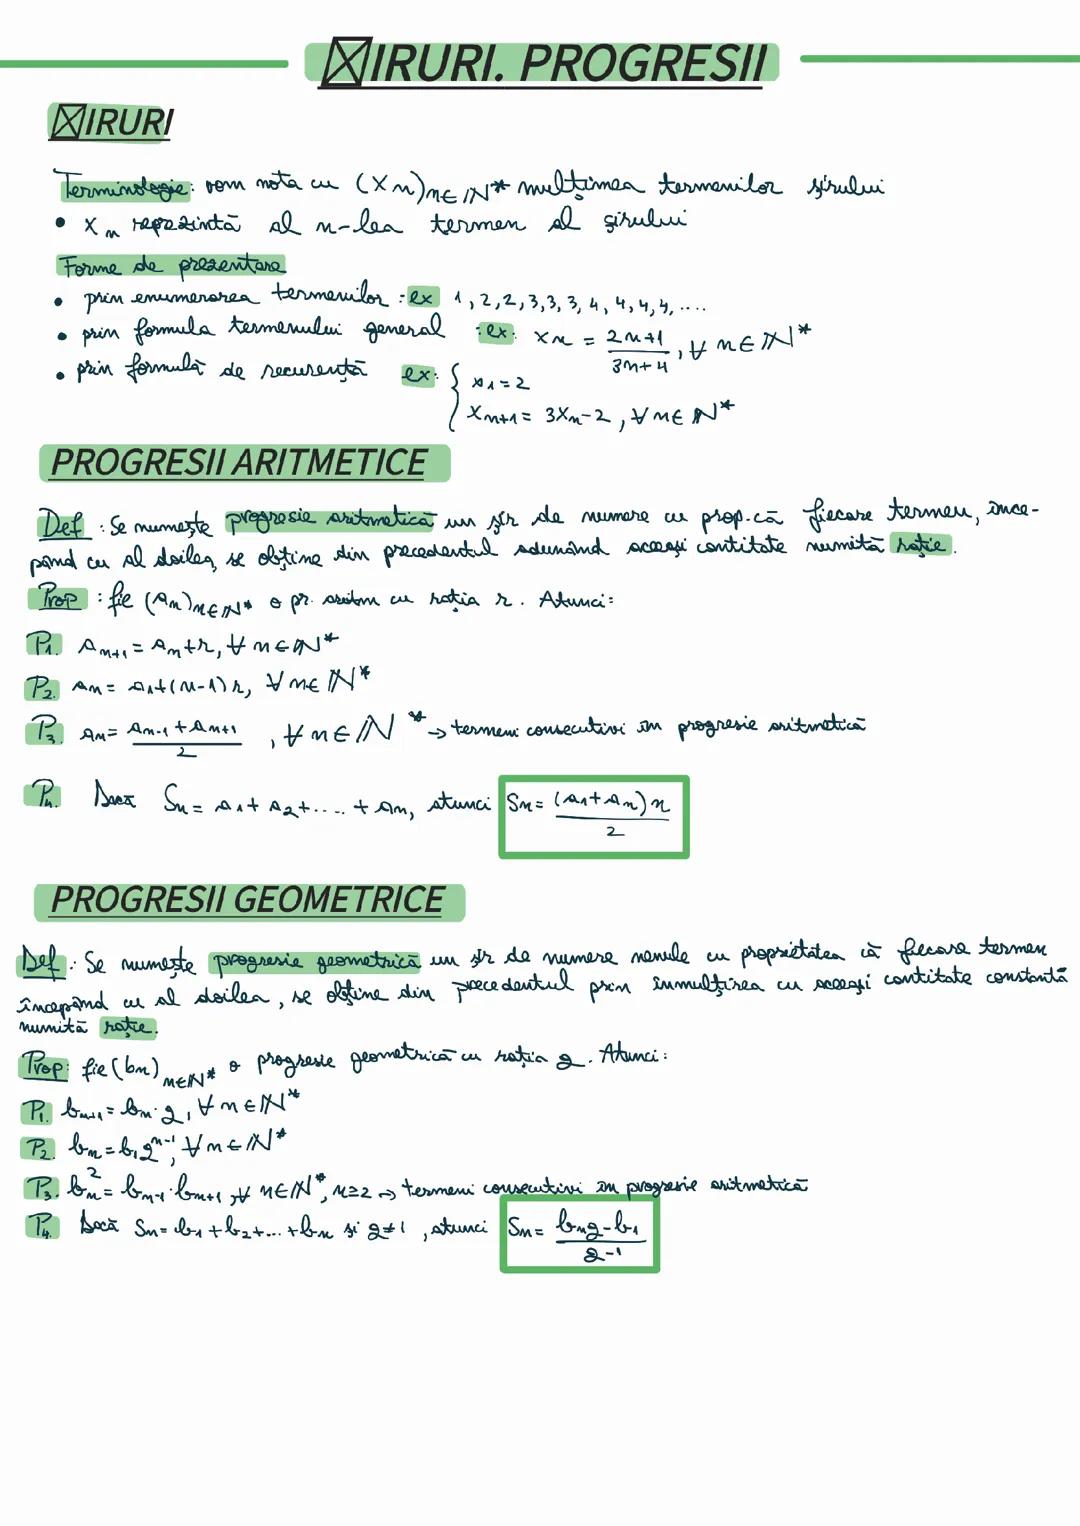 ȘIRURI. PROGRESII
ȘIRURI
Terminologie: vom nota cu (Xn)n∈ℕ* mulțimea termenilor șirului
• Xn reprezintă al n-lea termen al șirului
Forme de prezentare
• prin enumerarea termenilor : ex 1, 2, 2, 3, 3, 3, 4, 4, 4, 4, ....
• prin formula termenului general : ex: xn = (2n+1)/(3n+4), ∀ n∈ℕ*
• prin formulă de recurență ex: { x1 = 2
xn+1 = 3Xn-2, ∀ n∈ ℕ*
PROGRESII ARITMETICE
Def : Se numește progresie aritmetică un șir de numere cu prop. că fiecare termen, înce-
pând cu al doilea, se obține din precedentul adunând aceeași cantitate numită rație.
Prop : fie (an)n∈ℕ* o pr. aritm cu rația r. Atunci:
P1. an+1 = an+r, ∀ n∈ℕ*
P2. an = a1+(n-1)r, ∀ n∈ ℕ*
P3. an = (an-1 + an+1)/2, ∀ n∈ℕ* → termeni consecutivi în progresie aritmetică
P4. Dacă Sn = a1+ a2+..... + an, atunci Sn = (a1+an)n/2
PROGRESII GEOMETRICE
Def : Se numește progresie geometrică un șir de numere nenule cu proprietatea că fiecare termen
începând cu al doilea, se obține din precedentul prin înmulțirea cu aceeași cantitate constantă
numită rație.
Prop: fie (bn)n∈ℕ* o progresie geometrică cu rația q. Atunci:
P1. bn+1 = bn·q, ∀ n∈ℕ*
P2. bn = b1q^(n-1), ∀ n∈ℕ*
P3. bn² = bn-1·bn+1, ∀ n∈ℕ*, n≥2 → termeni consecutivi în progresie aritmetică
P4. Dacă Sn = b1+b2+...+bn și q≠1, atunci Sn = (bnq-b1)/(q-1)